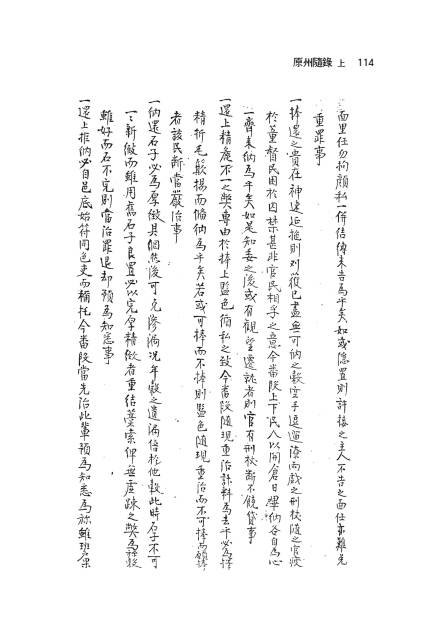 原州隨錄 上 114
面里任勿拘顔私一併結傳來告爲乎矣如或隱置則許接之主人不告之面任事難免
重罪事
一捧還之責在神速延拖則刈穫已盡無可納之穀空手逼還滯尙戱之刑杖隨之官疲
於董督民困於囚禁甚非官民相孚之意今番段上下民人以開倉日畢納各自爲心
一齊來納爲乎矣如是知委之後或有觀望遷就者則官有刑杖斷不饒貸事
一還上精麁不一之弊專由於捧上監色循私之致今番段隨現重治計料爲去乎必爲
精折毛颺揚而備納爲乎矣若或可捧而不捧則監色隨現重治而不可捧而
者該民斷當嚴治事
一納還石子必爲厚做其個然後可免滲漏況年穀之遠滿倍於他穀此時石子不可
一新做而雖用舊石子良置必以完厚精緻者重結藁索俾無虛踈之弊爲
雖好而石不完則當治罪退却預爲知悉事
一還上推納必自邑底始符同色吏而稱托今番段當先治此輩預爲知悉爲㫆雖班